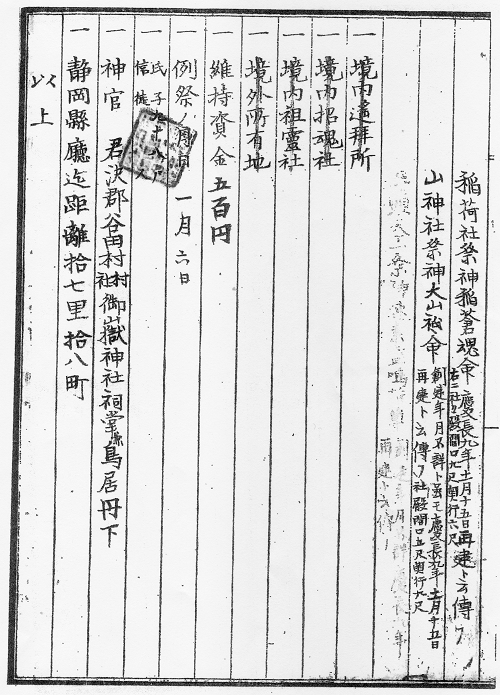 稲荷社祭神稲蒼魂命 慶長九年十一月十五日再建ト云傳フ
右二社殿間口九尺奥行六尺
山神社祭神大山祇命 創建年月不詳ト雖モ慶長九年十一月十五日
再建ト云傳フ社殿間口五尺奥行九尺
再建ト云傳フ
一 境内遙拝所
一 境内招魂社
一 境内祖霊社
一 境外所有地
一 維持資金 五百円
一 例祭ノ 一月六日
一 氏子
信徒
一 神官 君沢郡谷田村村社御嶽神社祠掌 鳥居丹下
一 静岡縣廳迄距離拾七里拾八町
以上